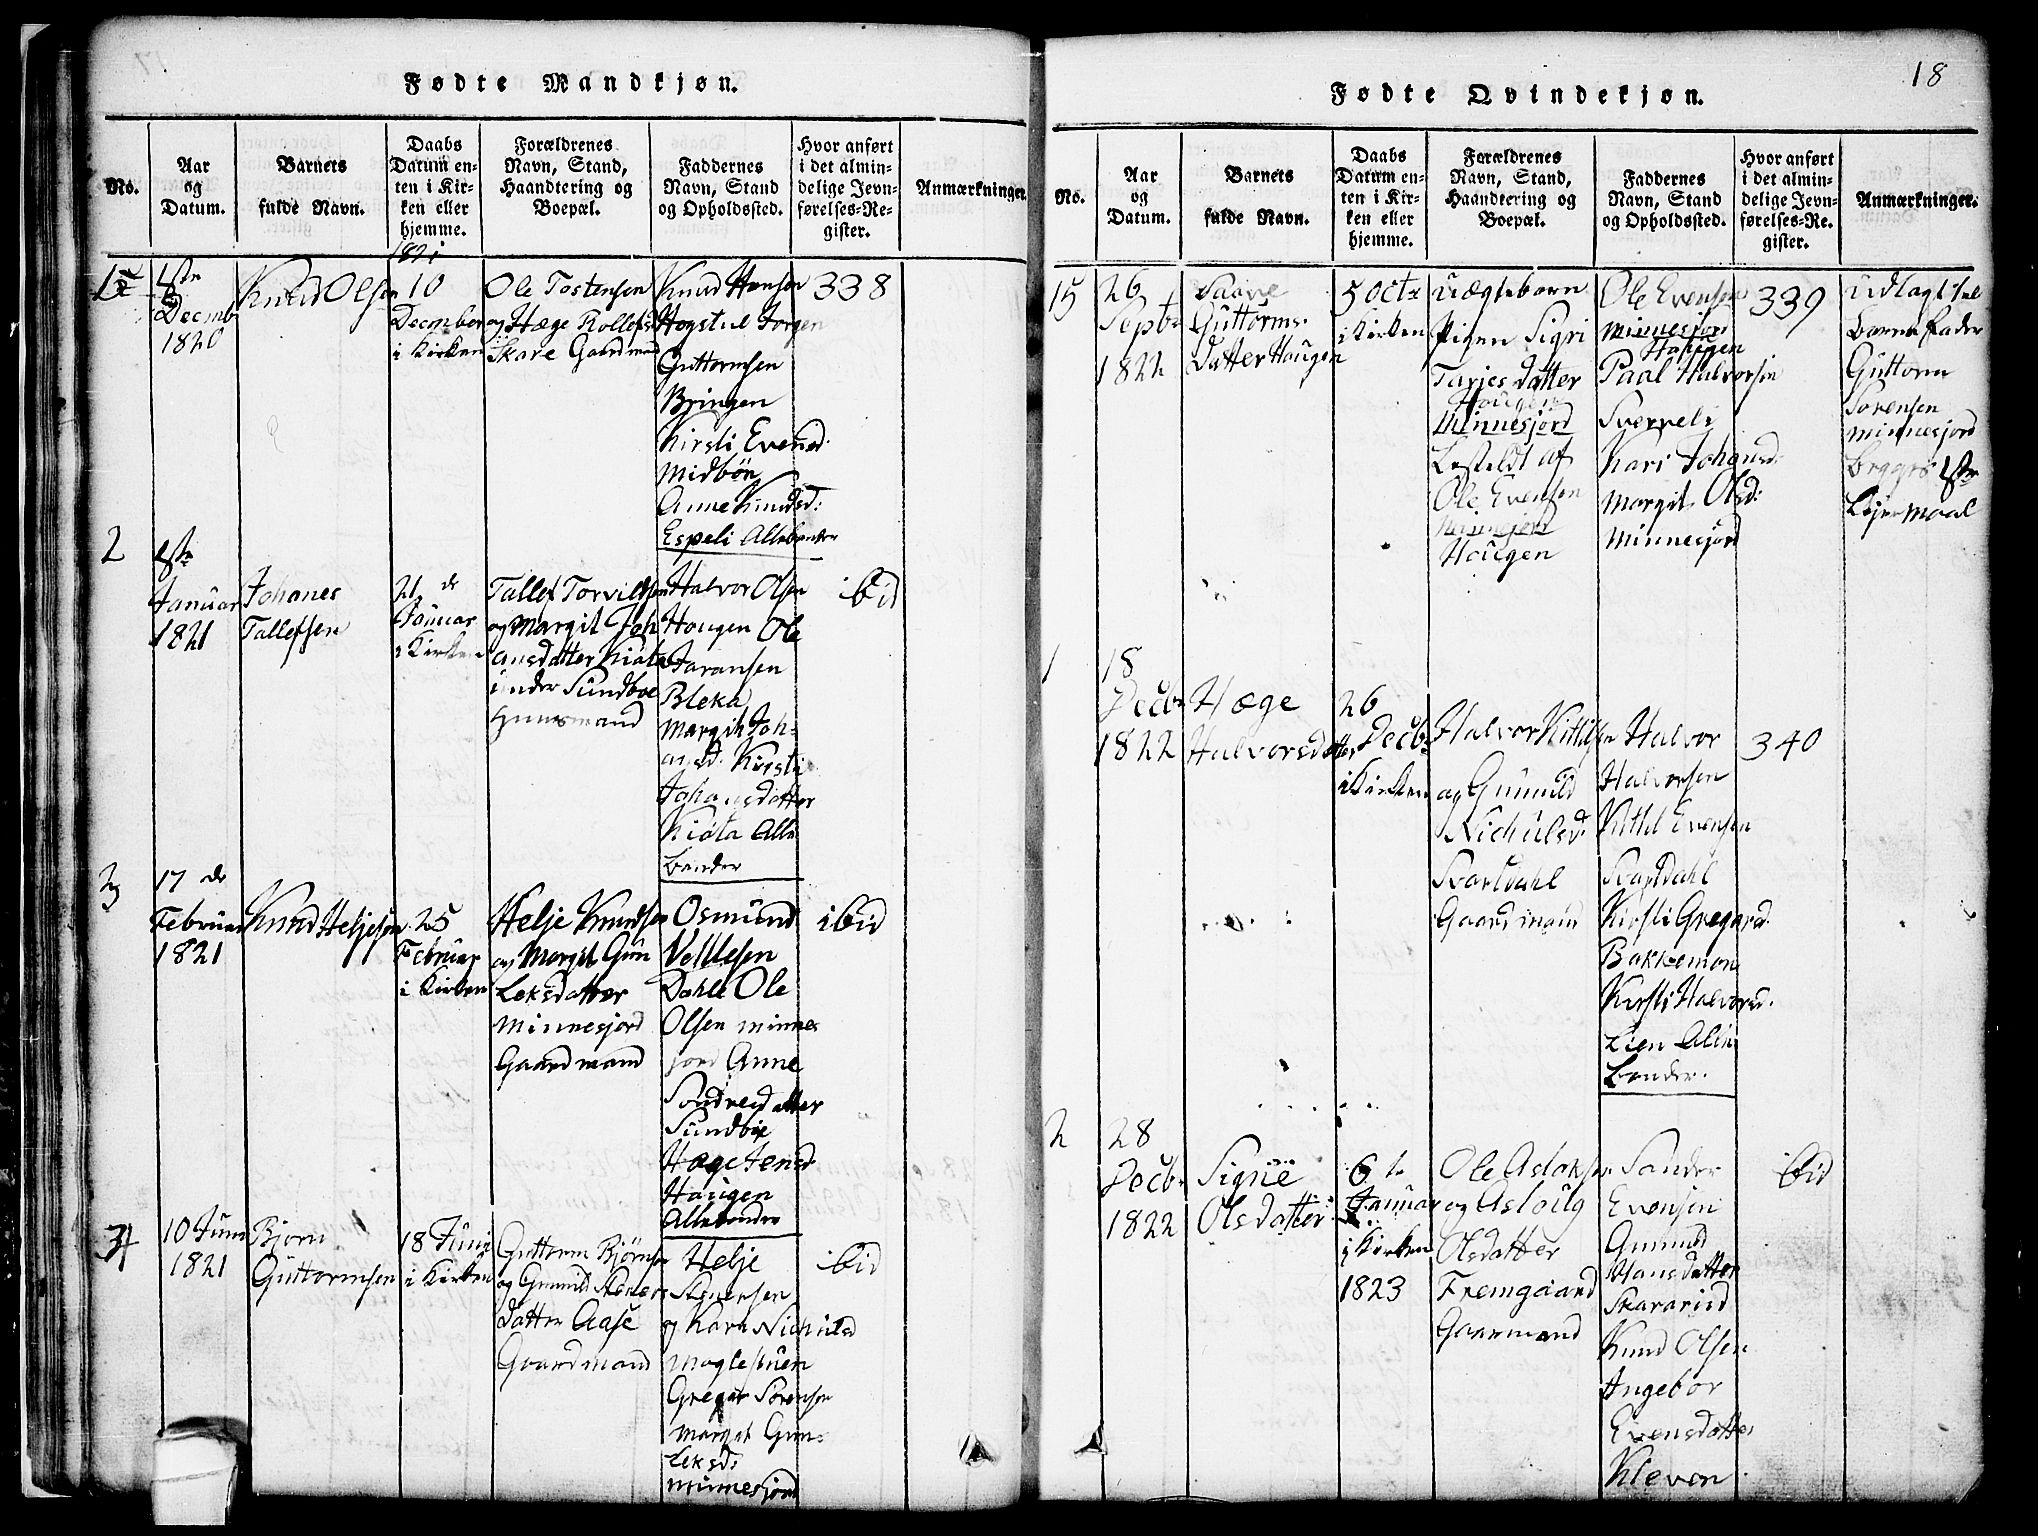 Fødte Mandkjøn.
No.
Aar
og
Datum.
Barnets
fulde Navn.
Daabs
Datum en-
ten i Kir-
ken eller
hjemme.
Forældrenes
Navn, Stand,
Haandtering og
Boepæl.
Faddernes
Navn, Stand
og Opholdssted.
Hvor anført
i det almin-
delige Jevn-
førelses-Re-
gister.
Anmærkninger.
1
Decmb
1820
Knud Olsen
1821
10
Decmber
i Kirken
Ole Tostensen
og Hæge Rollefs
Skare Gaardmand
Knud Hansen
Hogstul Jorgen
Guttormsen
Bringen
Kirsti Evensd.
Midbön
Anne Knudsd:
Espeli Allebender
338
2
1ste
Januar
1821
Johanes
Tallefsen
21 de
Januar
i Kirken
Tallef Torvildsen
og Margit Joh
ansdatter Kiøta
under Sundboe
Huusmand
Halvor Olsen
Hougen Ole
Jaransen
Bleka
Margit Joh-
ansd. Kirsti
Johansdatter
Kiøta Alle
bender
ibid
3
17 de
Februar
1821
Knud Heljesen
25
Februar
i Kirken
Helje Knudsen
og Margit Gun
leksdatter
Minnesjord
Gaardmand
Osmund
Vetlesen
Dahle Ole
Olsen Minnes
jord Anne
Sondredatter
Sundbøe
Hæge Jensd
Haugen
Allebender
ibid
4
10 Juni
1821
Bjorn
Guttormsen
18 Juni
i Kirken
Guttorm Bjørnsen
og Gunnild Stener
datter Aase
Gaardmand
Helje
Stenersen
og Kari Nichulsd
Moglestuen
Gregar Sorensen
Margit Gun-
leksd:
Minnesjord
ibid
18
Fødte Qvindekjøn.
No.
Aar
og
Datum.
Barnets
fulde Navn.
Daabs
Datum en-
ten i Kir-
ken eller
hjemme.
Forældrenes
Navn, Stand,
Haandtering og
Boepæl.
Faddernes
Navn, Stand
og Opholdssted.
Hvor anført
i det almin-
delige Jevn-
førelses-Re-
gister.
Anmærkninger.
15
26
Septbr
1822
Guttorms-
datter Haugen
5 Octr
i Kirken
Uægteborn
Pigen Sigri
Tarjesdatter
Hougen
Minnesjord
Besteldt af
Ole Evensen
Minnesjord
Hougen
Ole Evensen
Minnesjord
Haugen
Paal Halvorsen
Sverveli
Kari Johansd:
Margit Olsd:
Minnesjord
339
Udlagt til
Barnefader
Guttorm
Sorensen
Minnesjord
Begges 1ste
Lejermaal
1
18
Decbr
1822
Hæge
Halvorsdatter
26
Decbr
i Kirken
Halvor Kittilsen
og Gunnild
Nichulsd
Svartdahl
Gaardmand
Halvor
Halvorsen
Kittil Evensen
Svartdahl
Kirsti Gregard.
Bakkemon
Kirsti Halvorsd.
Lien Alle
bender.
340
2
28
Decbr
1822
Signe
Olsdatter
6te
Januar
i Kirken
1823
Ole Aslaksen
og Aslaug
Olsdatter
Fremgaard
Gaarmand
Sander
Evensen
Gunnild
Hansdatter
Skararud
Knud Olsen
Ingebor
Evensdatter
Kleven
ibid